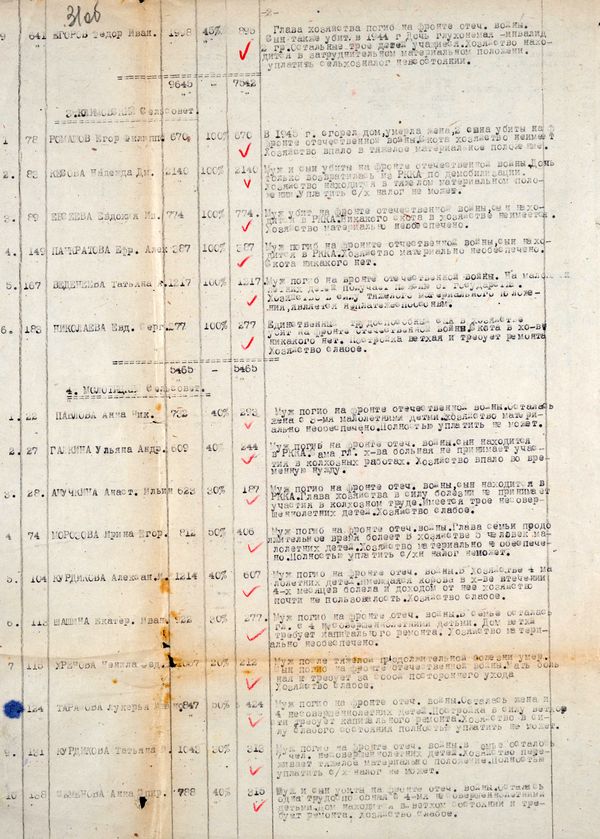 31об
-2-
9 641 ЕГОРОВ Федор Иван. 1958 45% 895 Глава хозяйства погиб на фронте отеч. войны.
Сын также убит в 1944 г Дочь глухонемая -инвалид
2 гр. Остальные трое детей учащиеся. Хозяйство нахо-
дится в затруднительном материальном положении.
уплатить сельхозналог не в состоянии.
9645 - 7542
Сельсовет.
1. 78 РОМАНОВ Егор 670 100% 670 В 1943 г. сгорел дом, умерла жена, 2 сына убиты на ф
фронте отечественной войны. Скота хозяйство неимеет
Хозяйство впало в тяжелое материальное положение.
2. 83 Надежда Дм. 2140 100% 2140 Муж и сын убиты на фронте отечественной войны. Дочь
только возвратилась из РККА по демобилизации.
Хозяйство находится в тяжелом материальном поло-
жении. Уплатить с/х налог не может.
3. 89 ЕВСЕЕВА Евдокия Ив. 774 100% 774. Муж убит на фронте отечественной войны, сын нахо-
дится в РККА. Никакого скота в хозяйстве неимеется.
Хозяйство материально необеспечено.
4. 149 ПАНКРАТОВА Ефр. Алек 387 100% 387 Муж погиб на фронте отчественной войны, сын нахо-
дится в РККА. Хозяйство материально необеспечено.
Скота никакого нет.
5. 167 ВЕДЕНЕЕВА Татьяна 1217 100% 1217 Муж погиб на фронте отечественной войны. На
детей получает от государства.
Хозяйство в силу тяжелого материального положе-
ния, является неплатежеспособным.
6. 183 НИКОЛАЕВА Евд. Серг. 277 100% 277 Единственный трудоспособный сын в хозяйстве
убит на фронте отечественной войны. Скота в хо-ве
никакого нет. Постройка ветхая и требует ремонта
Хозяйство слабое.
5465 - 5465
4. Сельсовет.
1. 22 ПАВЛОВА Анна Ник. 732 40% 293 Муж погиб на фронте отечественной войны. Осталась
жена с 3-мя малолетними детьми. Хозяйство матери-
ально необеспечено. Полностью уплатить не может.
2. 27 ГАЛКИНА Ульяна Андр. 609 40% 244 Муж погиб на фронте отеч. войны. сын находится
в РККА. Сама гл. х-ва больная не принимает учас-
тия в колхозных работах. Хозяйство впало во вре-
менную нужду.
3. 28. АНУЧКИНА Анаст. Ильин 623 30% 187 Муж погиб на фронте отеч. войны, сын находится в
РККА. Глава хозяйства в силу болезни не принимает
участия в колхозном труде. Имеется трое несовер-
шеннолетних детей. Хозяйство слабое.
4 74 МОРОЗОВА Ирина Егор. 812 50% 406 Муж погиб на фронте отеч. войны. Глава семьи продо
лжительное время болеет В хозяйстве 5 человек ма-
лолетних детей. Хозяйство материально не обеспече-
но. Полностью уплатить с/хн налог неможет.
5. 104 КУРДЮКОВА Алексан. 1214 40% 607 Муж погиб на фронте отеч. войны. В хозяйстве 4 ма
лолетних детей. Имеющаяся корова в х-ве втечении
4-х месяцев болела и доходом от нее хозяйство
почти не пользовалось. Хозяйство слабое.
6. 113 ШАШИНА Екатер. Иван. 922 30% 277. Муж погиб на фронте отеч. войны. В семье осталась
гл. с 4 несовершеннолетними детьми. Дом ветхий
требует капитального ремонта. Хозяйство матери-
ально необеспечено.
7 20% 212 Муж после тяжелой продолжительной болезни умер.
Сын погиб на фронте отечественной войны. Мать боль
ная и требует за собой постороннего ухода
Хозяйство слабое.
124 ТАРАСОВА Лукерья 847 50% 424 Муж погиб на фронте отеч. войны. Осталась жена и
4 несовершеннолетних детей. Постройка в силу ветхос
ти требует капитального ремонта. Хозяйство в си-
лу слабого состояния полностью уплатить не может.
9. 131 КУРДЮКОВА Татьяна 1043 30% 313 Муж погиб на фронте отеч. войны. В семье осталось
чел. несовершеннолетних детей. Хозяйство пере-
живает тяжелое материальное положение. Полностью
уплатить с/х налог не может.
10 138 Анна 788 40% 315 Муж и сын убиты на фронте отеч. войны. Осталась
одна трудоспособная с 4-мя несовершеннолетними
детьми. Дом находится в ветхом состоянии и тре-
бует ремонта. Хозяйство слабое.